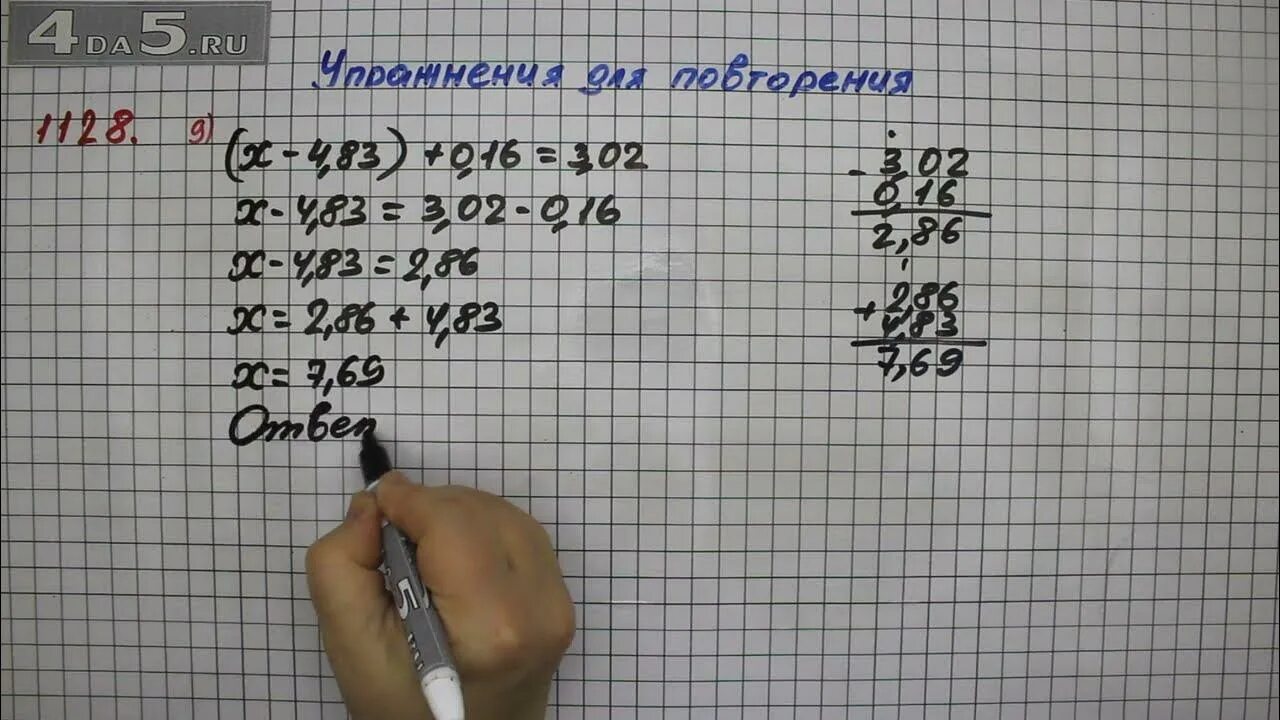 4DA5.RU
Упражнения для повторения
1128. д)
(x - 4,83) + 0,16 = 3,02
x - 4,83 = 3,02 - 0,16
x - 4,83 = 2,86
x = 2,86 + 4,83
x = 7,69
Ответ
- 3,02
0,16
2,86
+ 2,86
4,83
7,69
5